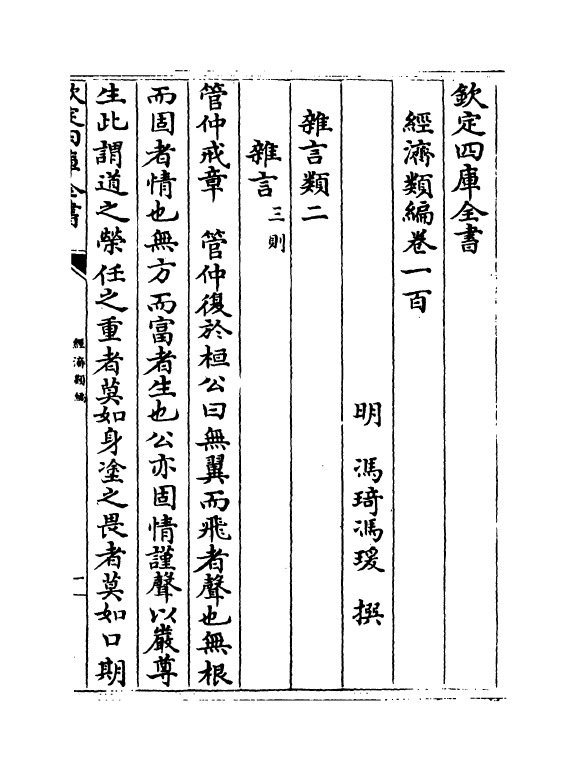 欽定四庫全書
經濟類編卷一百
明 馮琦馮瑗 撰
雜言類二
雜言三則
管仲戒章 管仲復於桓公曰無翼而飛者聲也無根
而固者情也無方而富者生也公亦固情謹聲以嚴尊
生此謂道之榮任之重者莫如身塗之畏者莫如口期
欽定四庫全書
經濟類編